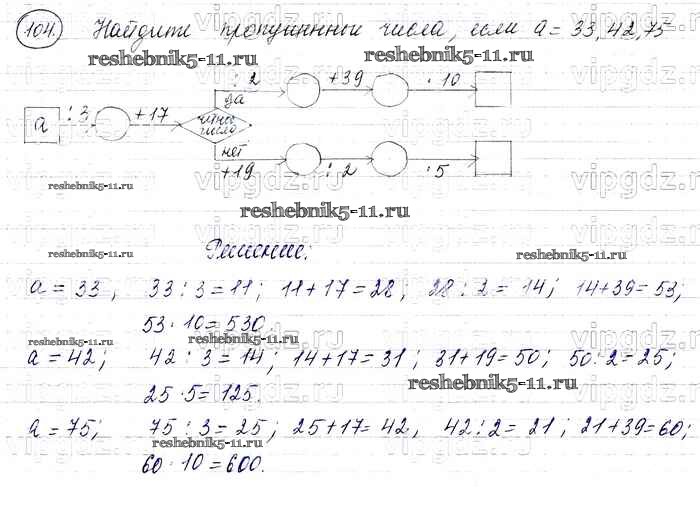 104. Найдите пропущенные числа, если a = 33, 42, 75
reshebnik5-11.ru
: 2 +39 · 10
да
a : 3 +17 четное число
нет
+19 : 2 · 5
reshebnik5-11.ru
reshebnik5-11.ru
vipgdz.ru
Решение:
reshebnik5-11.ru reshebnik5-11.ru
a = 33, 33 : 3 = 11; 11 + 17 = 28; 28 : 2 = 14; 14 + 39 = 53;
53 · 10 = 530
reshebnik5-11.ru
a = 42; 42 : 3 = 14; 14 + 17 = 31; 31 + 19 = 50; 50 : 2 = 25;
reshebnik5-11.ru
25 · 5 = 125.
a = 75; 75 : 3 = 25; 25 + 17 = 42, 42 : 2 = 21; 21 + 39 = 60;
reshebnik5-11.ru
60 · 10 = 600.